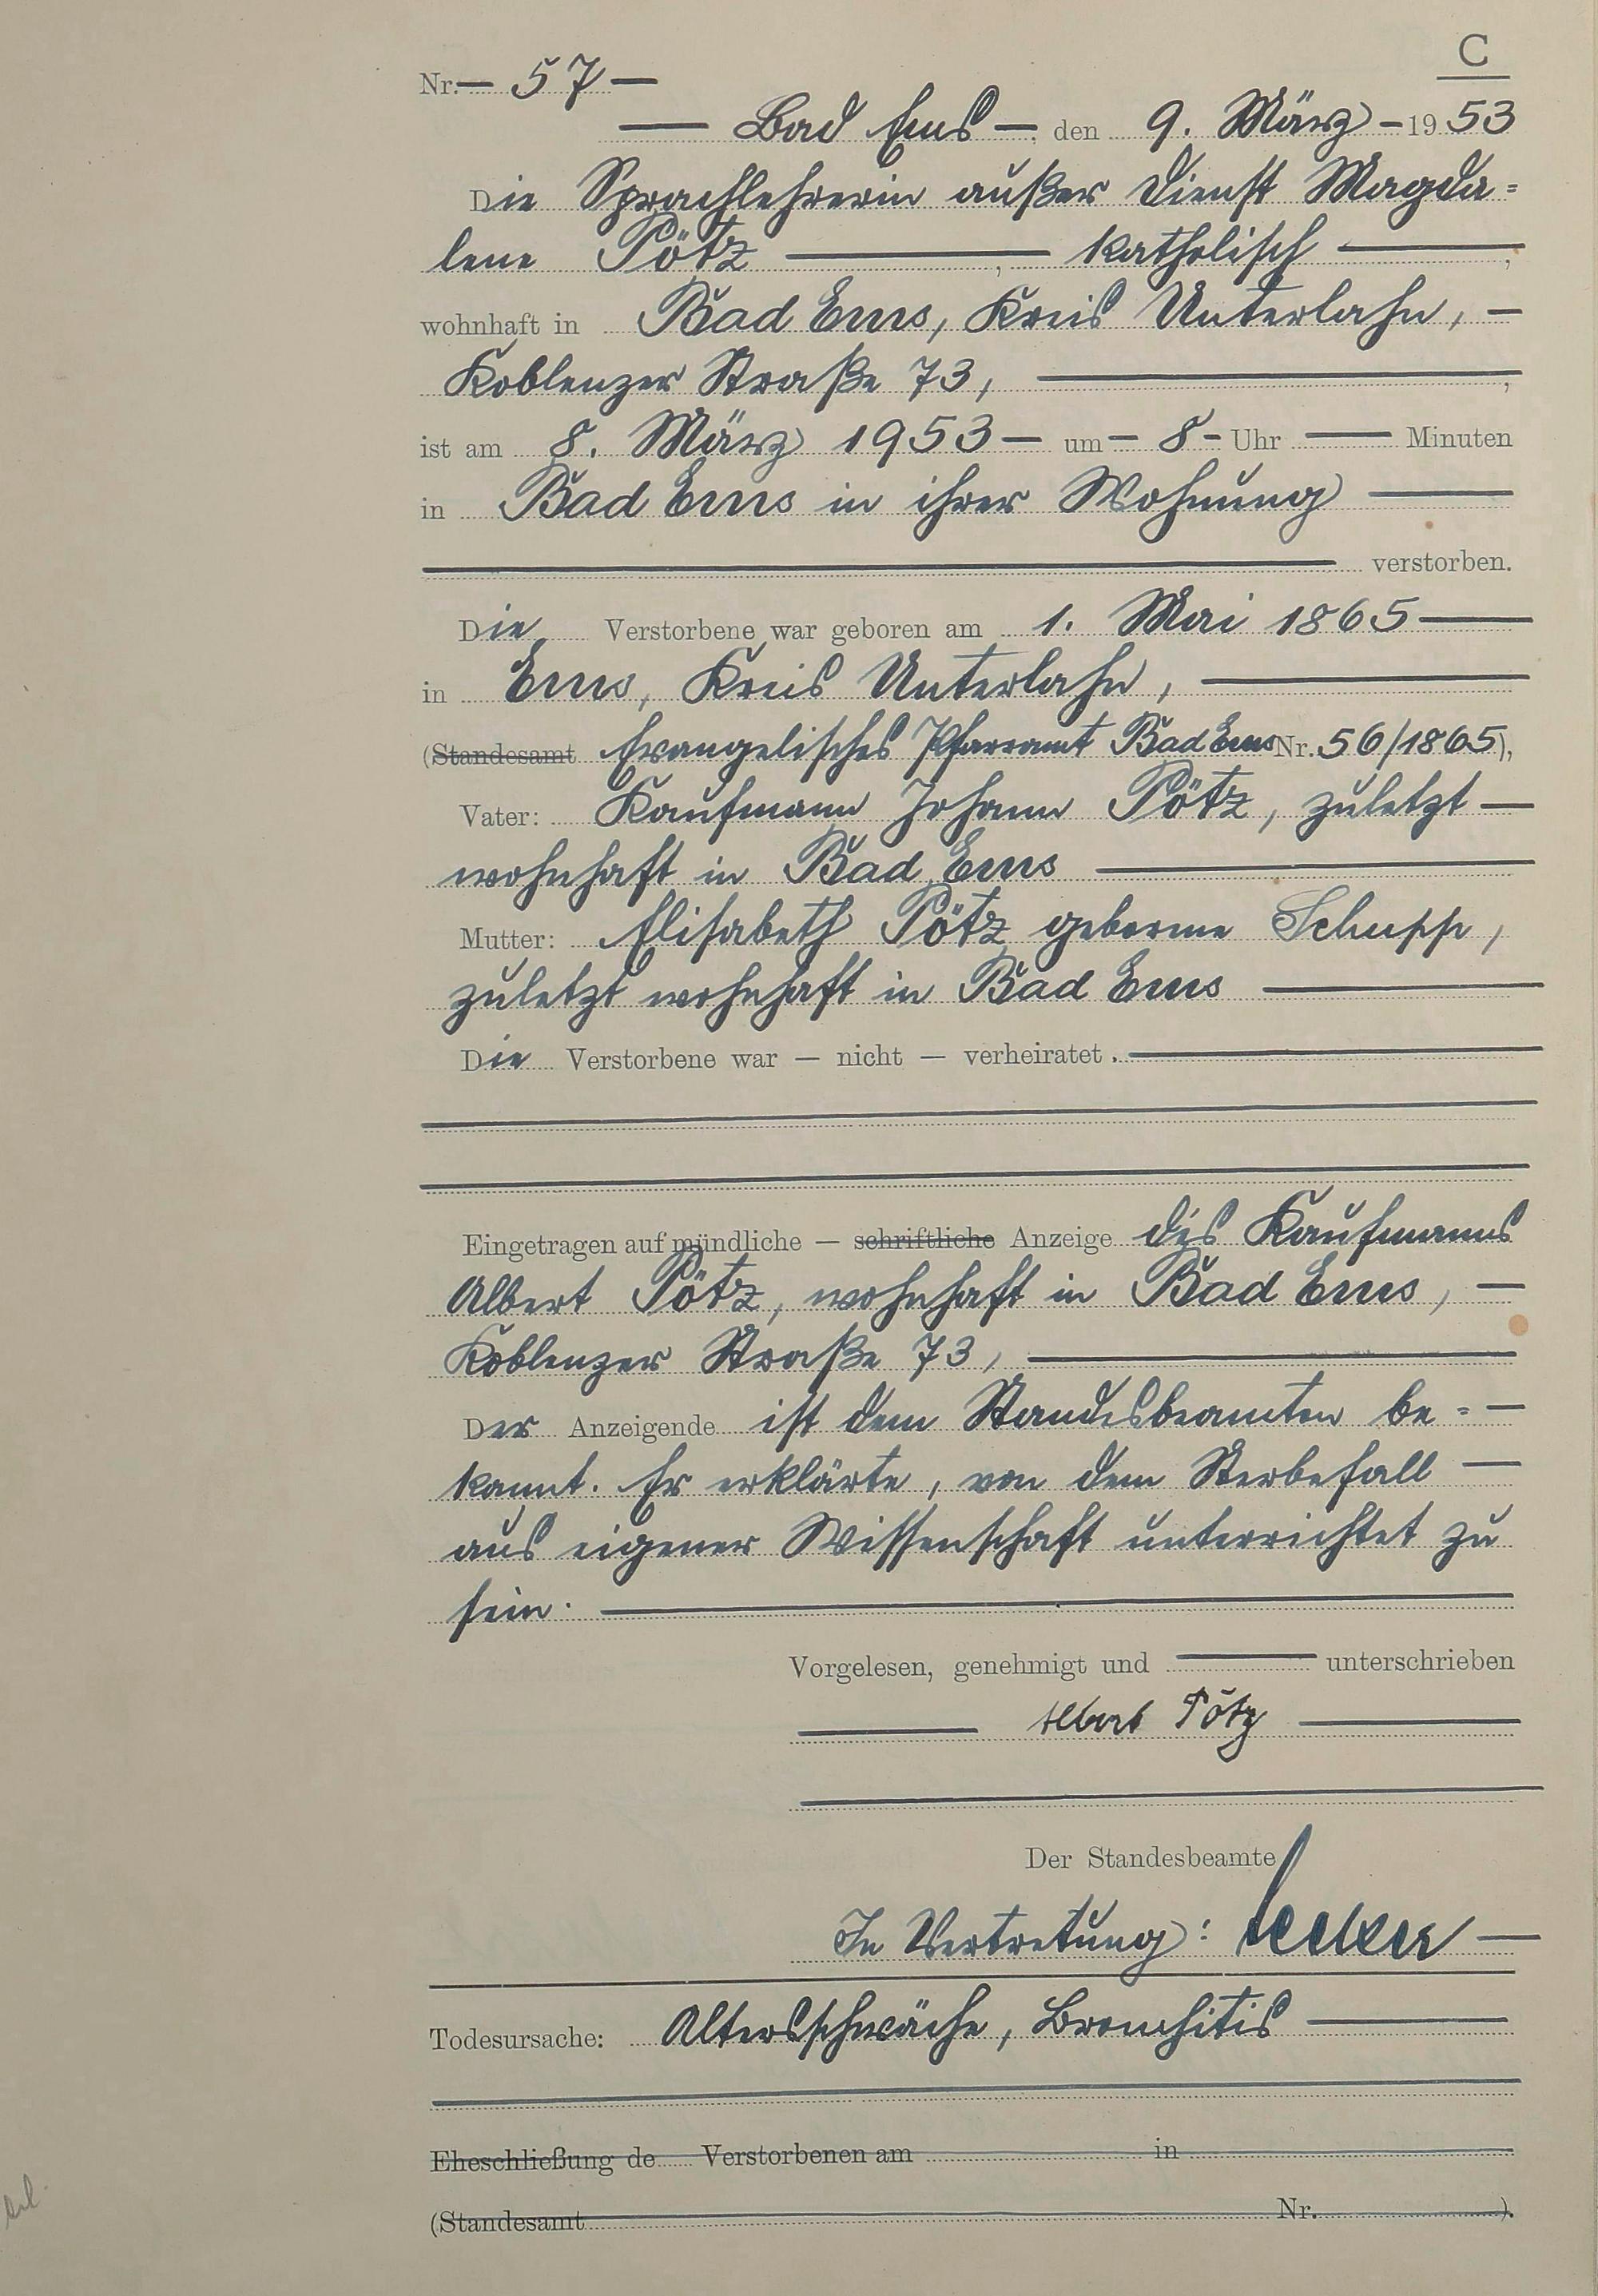 C
Nr. — 57 —
— Bad Ems — , den 9. März - 1953
Die Sprachlehrerin außer Dienst Magda=
lene Pötz —, katholisch —,
wohnhaft in Bad Ems, Kreis Unterlahn, —
Koblenzer Straße 73, —,
ist am 8. März 1953 — um — 8 - Uhr — Minuten
in Bad Ems in ihrer Wohnung —
— verstorben.
Die Verstorbene war geboren am 1. Mai 1865 —
in Ems, Kreis Unterlahn, —
(Standesamt Evangelisches Pfarramt Bad Ems Nr. 56/1865),
Vater: Kaufmann Johann Pötz, zuletzt —
wohnhaft in Bad Ems —
Mutter: Elisabeth Pötz geborene Schupp,
zuletzt wohnhaft in Bad Ems —
Die Verstorbene war — nicht — verheiratet. —
Eingetragen auf mündliche — schriftliche Anzeige des Kaufmanns
Albert Pötz, wohnhaft in Bad Ems, —
Koblenzer Straße 73, —
Der Anzeigende ist dem Standesbeamten be= —
kannt. Er erklärte, von dem Sterbefall —
aus eigener Wissenschaft unterrichtet zu
sein. —
Vorgelesen, genehmigt und — unterschrieben
— Albert Pötz —
Der Standesbeamte
In Vertretung: —
Todesursache: Altersschwäche, Bronchitis —
Eheschließung de Verstorbenen am in
(Standesamt Nr. ).